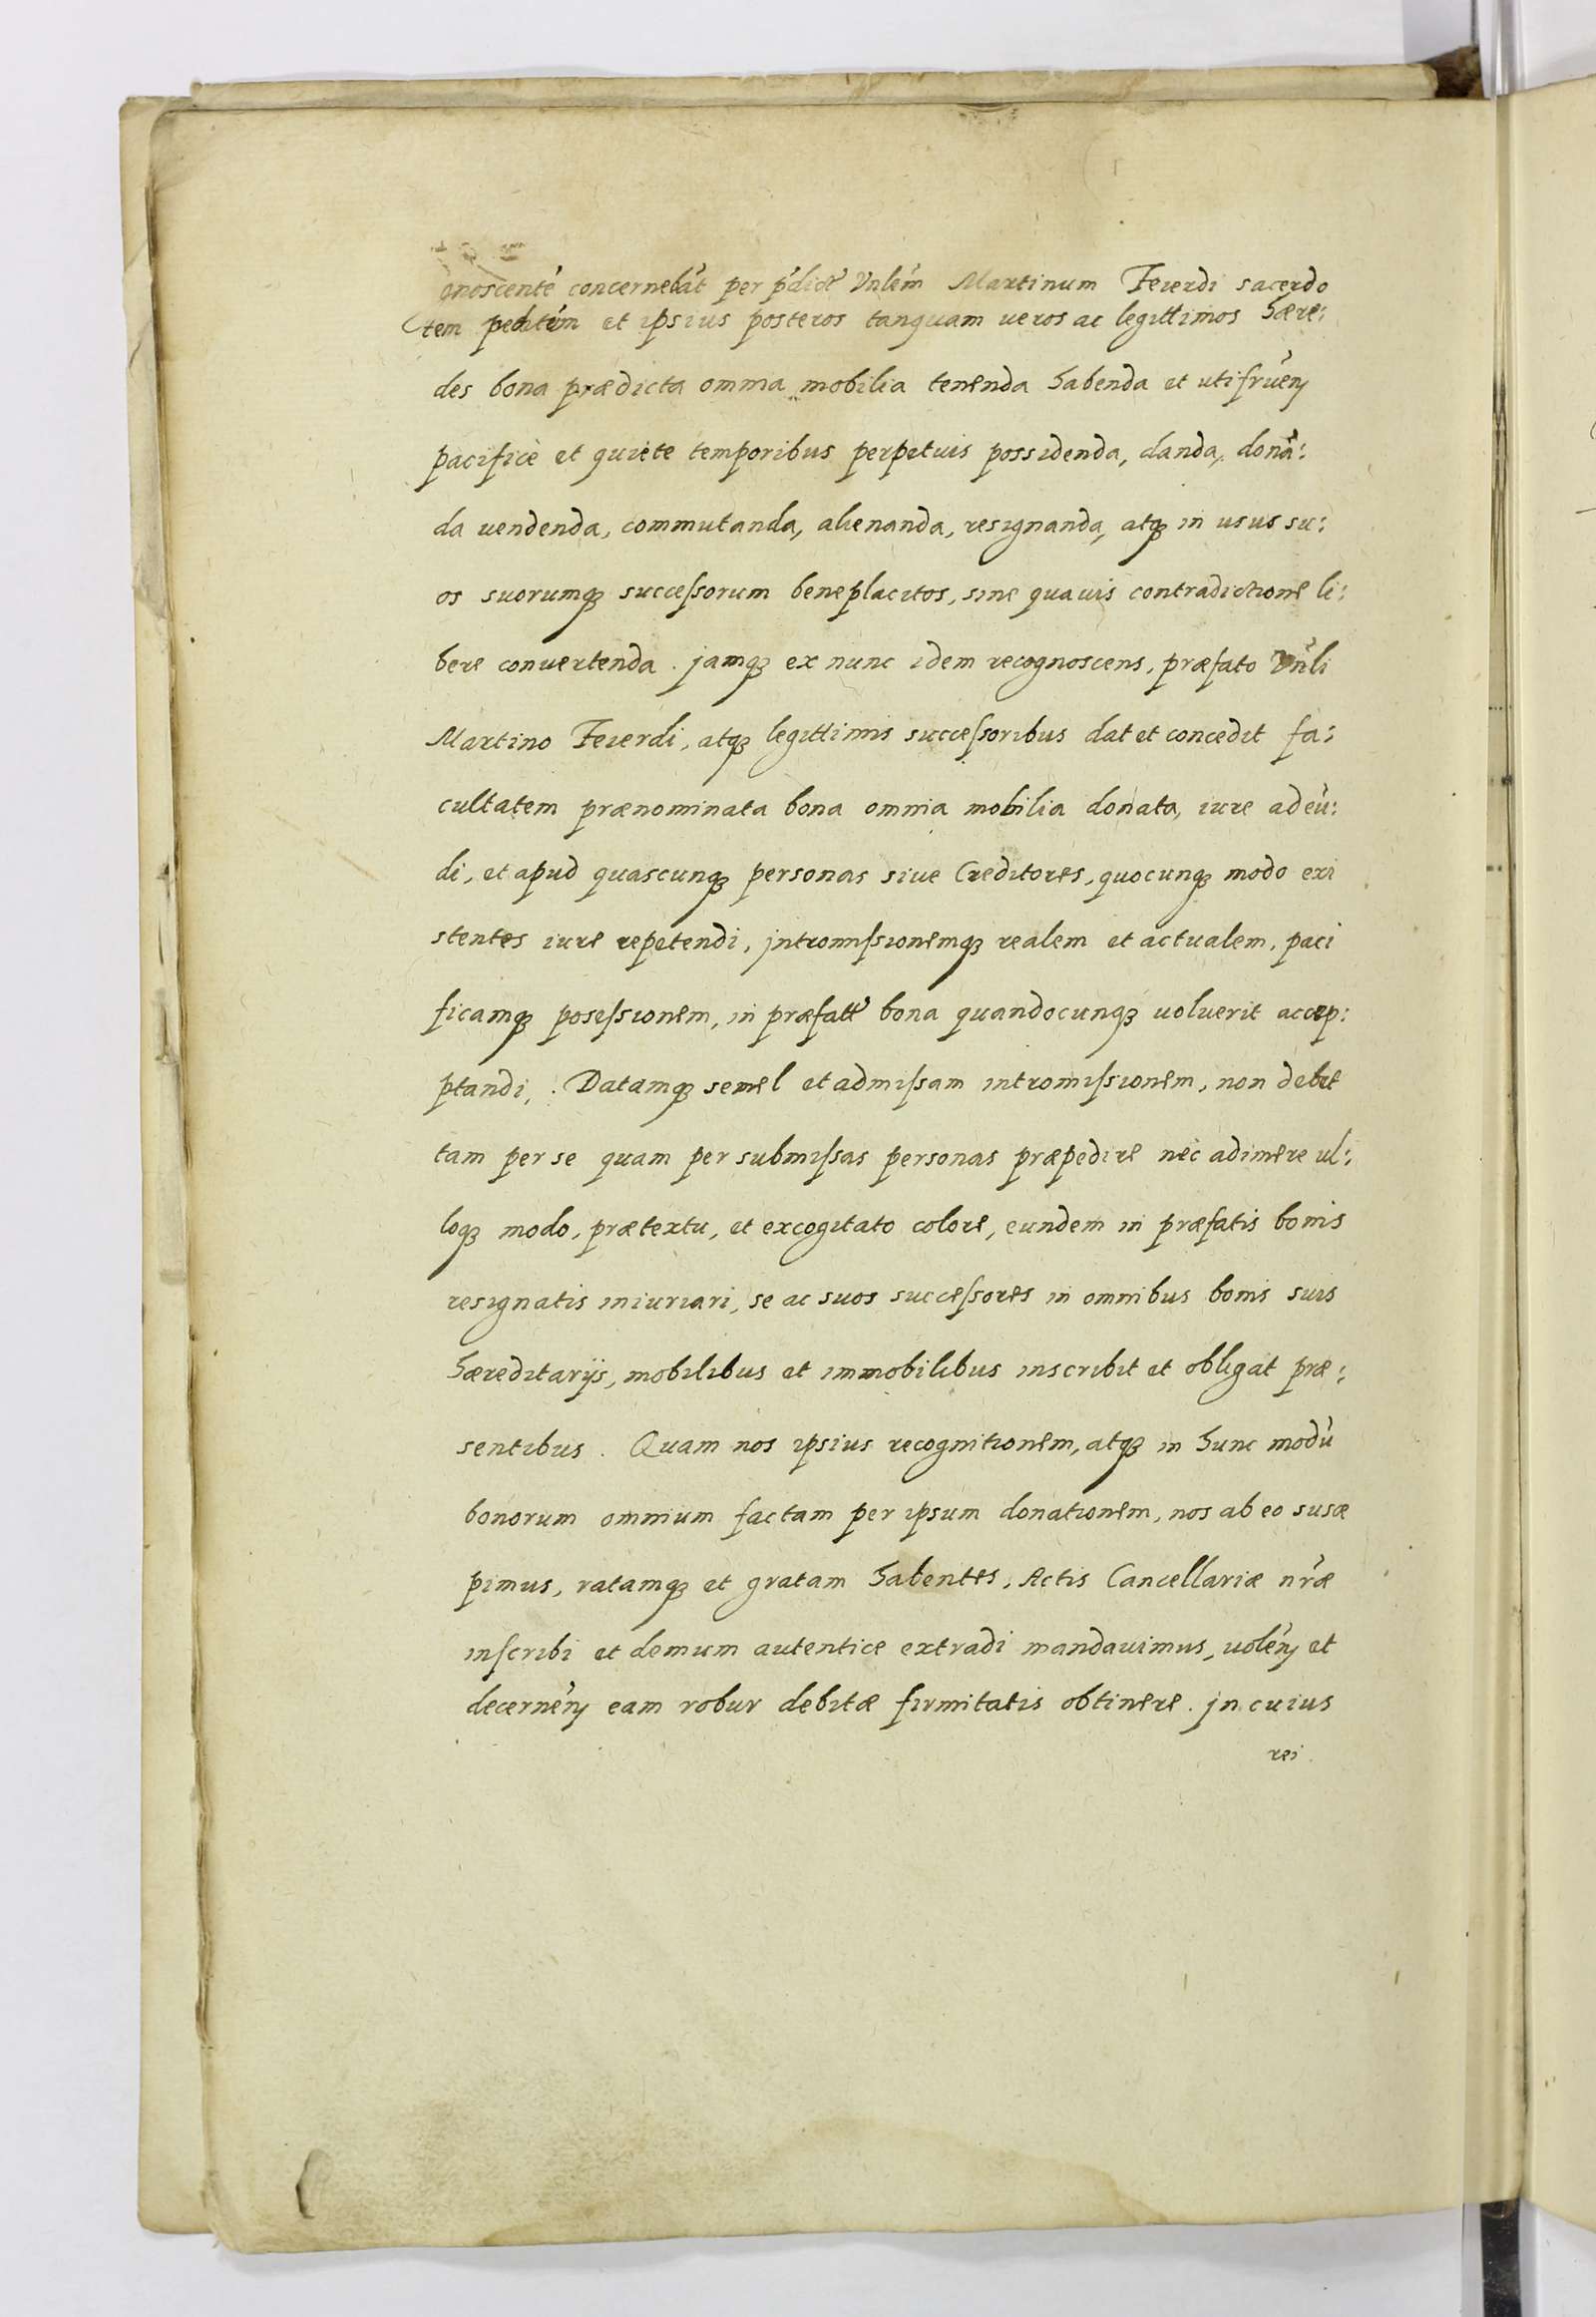 gnoscentē concernebāt per p̄dictū Vnlēm Martinum Feierdi sacerdo
tem pedtēm et ipsius posteros tanquam ueros ac legittimos hære:
des bona prædicta omnia mobilia tenenda habenda et utifruēn
pacificè et quiete temporibus perpetuis possidenda, danda, donā:
da uendenda, commutanda, alienanda, resignanda, atqꝫ in usus su:
os suorumqꝫ succeſsorum beneplacitos, sine quauis contradictione li:
bere conuertenda. jamqꝫ ex nunc idem recognoscens, præfato Vn̄li
Martino Feierdi, atqꝫ legittimis succeſsoribus dat et concedit fa:
cultatem prænominata bona omnia mobilia donata, iure adeū:
di, et apud quascunqꝫ personas siue Creditores, quocunqꝫ modo exi
stentes iure repetendi, jntromiſsionemqꝫ realem et actualem, paci
ficamqꝫ poseſsionem, in præfatū bona quandocunqꝫ uoluerit accep:
ptandi,. Datamqꝫ semel et admiſsam intromiſsionem, non debet
tam per se quam per submiſsas personas præpedire nec adimere ul:
loqꝫ modo, prætextu, et excogitato colore, eundem in præfatis bonis
resignatis iniuriari, se ac suos succeſsores in omnibus bonis suis
hæreditarijs, mobilibus et immobilibus inscribit et obligat præ:
sentibus. Quam nos ipsius recognitionem, atqꝫ in hunc modū
bonorum omnium factam per ipsum donationem, nos ab eo susæ
pimus, ratamqꝫ et gratam habentes, Actis Cancellariæ nr̄æ
inſcribi et demum autentice extradi mandauimus, uolēn et
decernēn eam robur debitæ firmitatis obtinere. jn cuius
rei